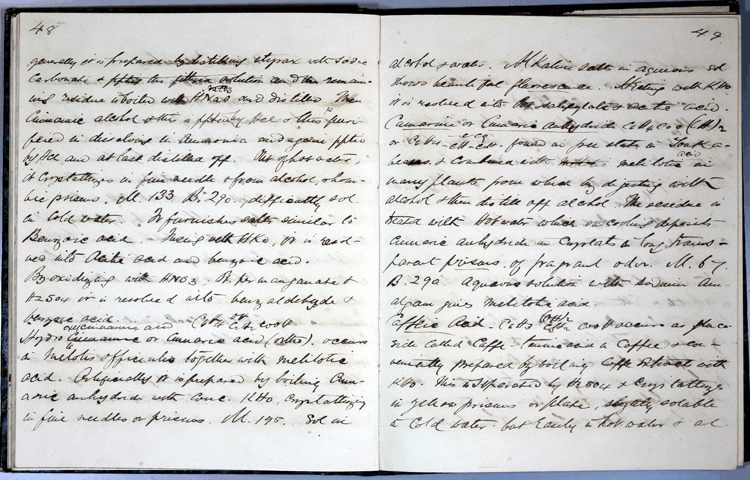 48
generally it is prepared by distilling styrax with Sodic
Carbonate & the filtered solution and the remain-
ing residue is boiled with and distilled. Then
Cinnamic alcohol & this is pptd by Hcl & this puri-
fied in dissolving in Ammonia and again pptd
by Hcl and at last distilled off. Out of hot water,
it Crystallizes in fine needle & from alcohol, rhom-
bic prisms. M. 133 B. 290. difficultly sol.
in Cold water. It furnishes salts similar to
Benzoic acid. Fusing with HKO, it is resol-
ved into Acetic acid and benzoic acid.
By oxidizing with HNO3. K. permanganate &
H2SO4 it is resolved into benzaldehyde &
benzoic acid.
Hydro or Cumaric acid (ortho). occurs
in Melilotus officinalis together with melilotic
acid. Artificially it is prepared by boiling Cum-
aric anhydrid with conc. KHO, Crystallizing
in fine needles or prisms. M. 195. Sol in
49.
alcohol & water. Alkaline salts in aqueous sol
shows beautiful fluorescence. Heating with KHO
it is resolved into salicylate & acetic acid.
Cumarine or Cumaric anhydride
or found in free state in Tonka
beans, & Combined with melilotic acid in
many plants from which by digesting with
alcohol & then distill off alcohol. The residue is
treated with hot water which on cooling deposits
Cumaric anhydride in Crystals in long trans-
parent prisms, of fragrant odor. M. 67.
B. 290. Aqueous solution with sodium Am-
algam gives melilotic acid.
Caffeic Acid. COOH occurs as gluco-
side called Caffe tannic acid in Coffee & con-
veniently prepared by boiling Caffe Extract with
KHO. This is Separated by H2SO4 & Crystallizes
in yellow prisms or plate, slightly soluble
in Cold water but Easily in hot water & al